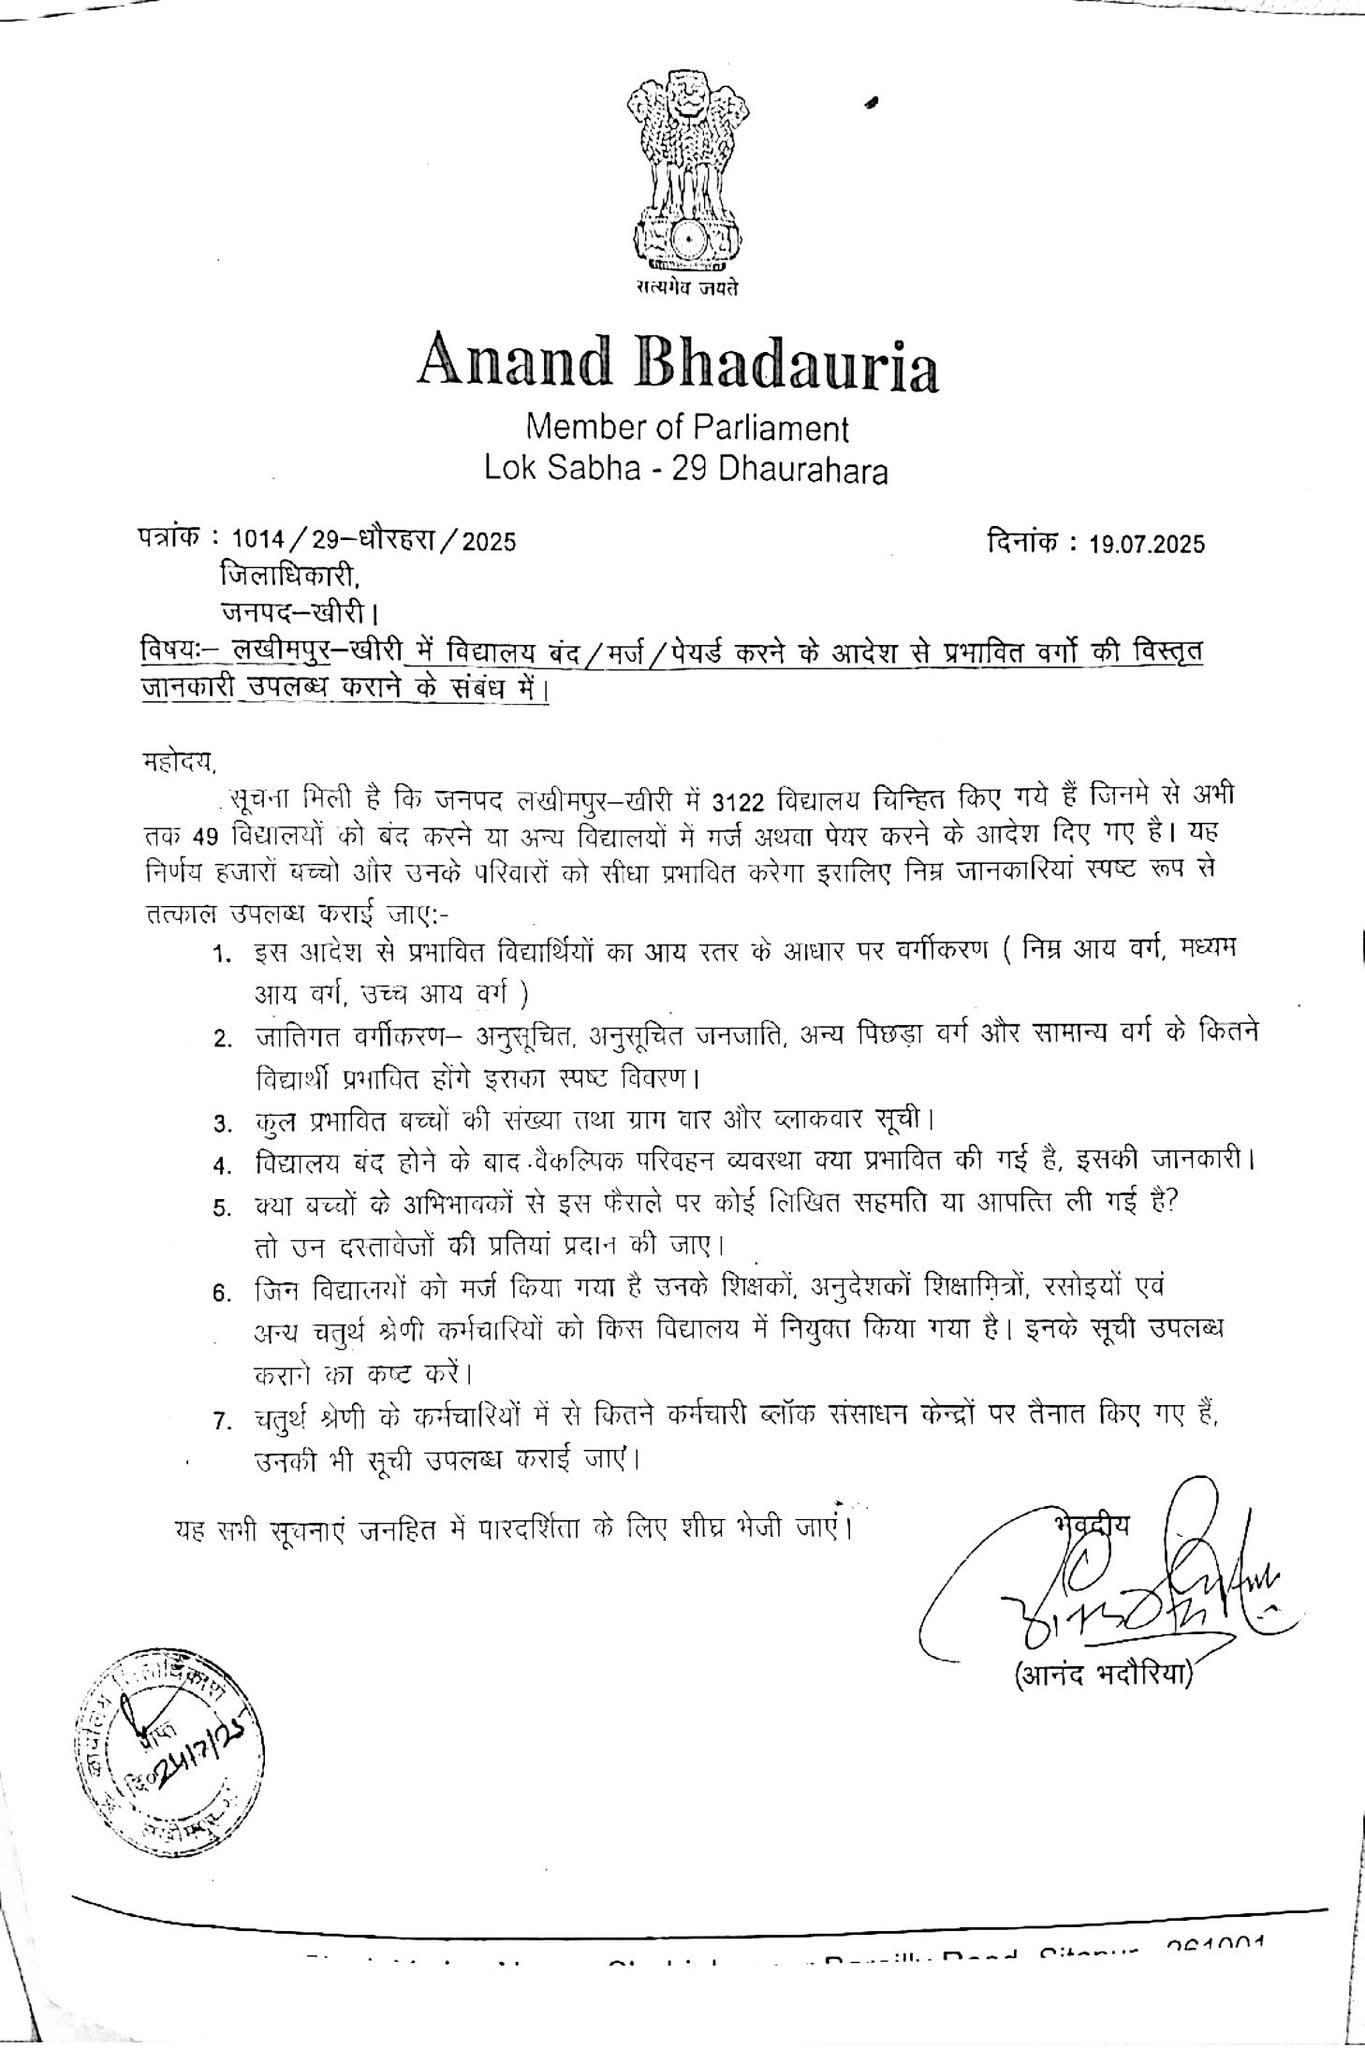 सत्यमेव जयते
Anand Bhadauria
Member of Parliament
Lok Sabha - 29 Dhaurahara
पत्रांक : 1014/29-धौरहरा/2025
दिनांक : 19.07.2025
जिलाधिकारी,
जनपद-खीरी।
विषयः- लखीमपुर-खीरी में विद्यालय बंद/मर्ज/पेयर्ड करने के आदेश से प्रभावित वर्गो की विस्तृत
जानकारी उपलब्ध कराने के संबंध में।
महोदय,
सूचना मिली है कि जनपद लखीमपुर-खीरी में 3122 विद्यालय चिन्हित किए गये हैं जिनमे से अभी
तक 49 विद्यालयों को बंद करने या अन्य विद्यालयों में मर्ज अथवा पेयर करने के आदेश दिए गए है। यह
निर्णय हजारों बच्चो और उनके परिवारों को सीधा प्रभावित करेगा इसलिए निम्न जानकारियां स्पष्ट रूप से
तत्काल उपलब्ध कराई जाए:-
1. इस आदेश से प्रभावित विद्यार्थियों का आय स्तर के आधार पर वर्गीकरण ( निम्न आय वर्ग, मध्यम
आय वर्ग, उच्च आय वर्ग )
2. जातिगत वर्गीकरण- अनुसूचित, अनुसूचित जनजाति, अन्य पिछड़ा वर्ग और सामान्य वर्ग के कितने
विद्यार्थी प्रभावित होंगे इसका स्पष्ट विवरण।
3. कुल प्रभावित बच्चों की संख्या तथा ग्राम वार और ब्लाकवार सूची।
4. विद्यालय बंद होने के बाद वैकल्पिक परिवहन व्यवस्था क्या प्रभावित की गई है, इसकी जानकारी।
5. क्या बच्चों के अभिभावकों से इस फैसले पर कोई लिखित सहमति या आपत्ति ली गई है?
तो उन दस्तावेजों की प्रतियां प्रदान की जाए।
6. जिन विद्यालयों को मर्ज किया गया है उनके शिक्षकों, अनुदेशकों शिक्षामित्रों, रसोइयों एवं
अन्य चतुर्थ श्रेणी कर्मचारियों को किस विद्यालय में नियुक्त किया गया है। इनके सूची उपलब्ध
कराने का कष्ट करें।
7. चतुर्थ श्रेणी के कर्मचारियों में से कितने कर्मचारी ब्लॉक संसाधन केन्द्रों पर तैनात किए गए हैं,
उनकी भी सूची उपलब्ध कराई जाएं।
यह सभी सूचनाएं जनहित में पारदर्शिता के लिए शीघ्र भेजी जाएं।
भवदीय
(आनंद भदौरिया)
कार्यालय जिलाधिकारी
प्राप्त
दि० 24/7/25
लखीमपुर
Road, Sitapur - 261001